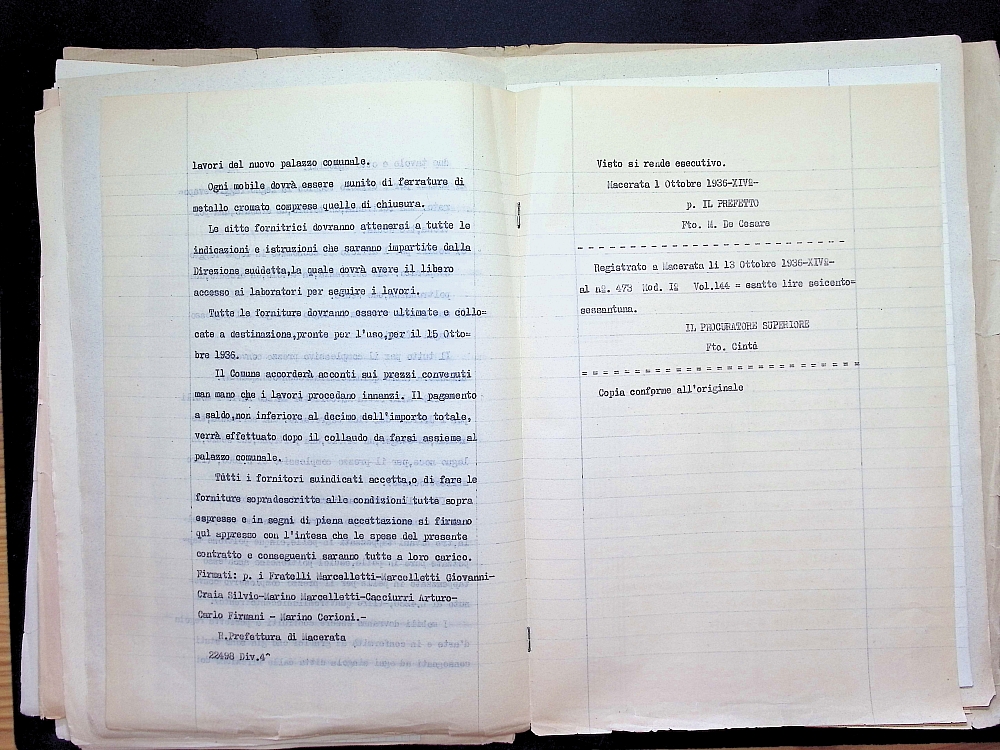 lavori del nuovo palazzo comunale.
Ogni mobile dovrà essere munito di ferrature di
metallo cromato comprese quelle di chiusura.
Le ditte fornitrici dovranno attenersi a tutte le
indicazioni e istruzioni che saranno impartite dalla
Direzione suddetta,la quale dovrà avere il libero
accesso ai laboratori per seguire i lavori.
Tutte le forniture dovranno essere ultimate e collo=
cate a destinazione,pronte per l'uso,per il 15 Otto=
bre 1936.
Il Comune accorderà acconti sui prezzi convenuti
man mano che i lavori procedano innanzi. Il pagamento
a saldo,non inferiore al decimo dell'importo totale,
verrà effettuato dopo il collaudo da farsi assieme al
palazzo comunale.
Tutti i fornitori suindicati accetta,o di fare le
forniture sopradescritte alle condizioni tutte sopra
espresse e in segni di piena accettazione si firmano
quì appresso con l'intesa che le spese del presente
contratto e conseguenti saranno tutte a loro carico.
Firmati: p. i Fratelli Marcelletti-Marcelletti Giovanni-
Craia Silvio-Marino Marcelletti-Cacciurri Arturo-
Carlo Firmani - Marino Cerioni.-
R.Prefettura di Macerata
22498 Div.4^
Visto si rende esecutivo.
Macerata 1 Ottobre 1936-XIVº-
p. IL PREFETTO
Fto. M. De Cesare
- - - - - - - - - - - - - - - - - - - - - - - - -
Registrato a Macerata li 13 Ottobre 1936-XIVº-
al nº. 473 Mod. Iº Vol.144 = esatte lire seicento=
sessantuna.
IL PROCURATORE SUPERIORE
Fto. Cintà
= = = = = = = = = = = = = = = = = = = = = = = = =
Copia conforme all'originale